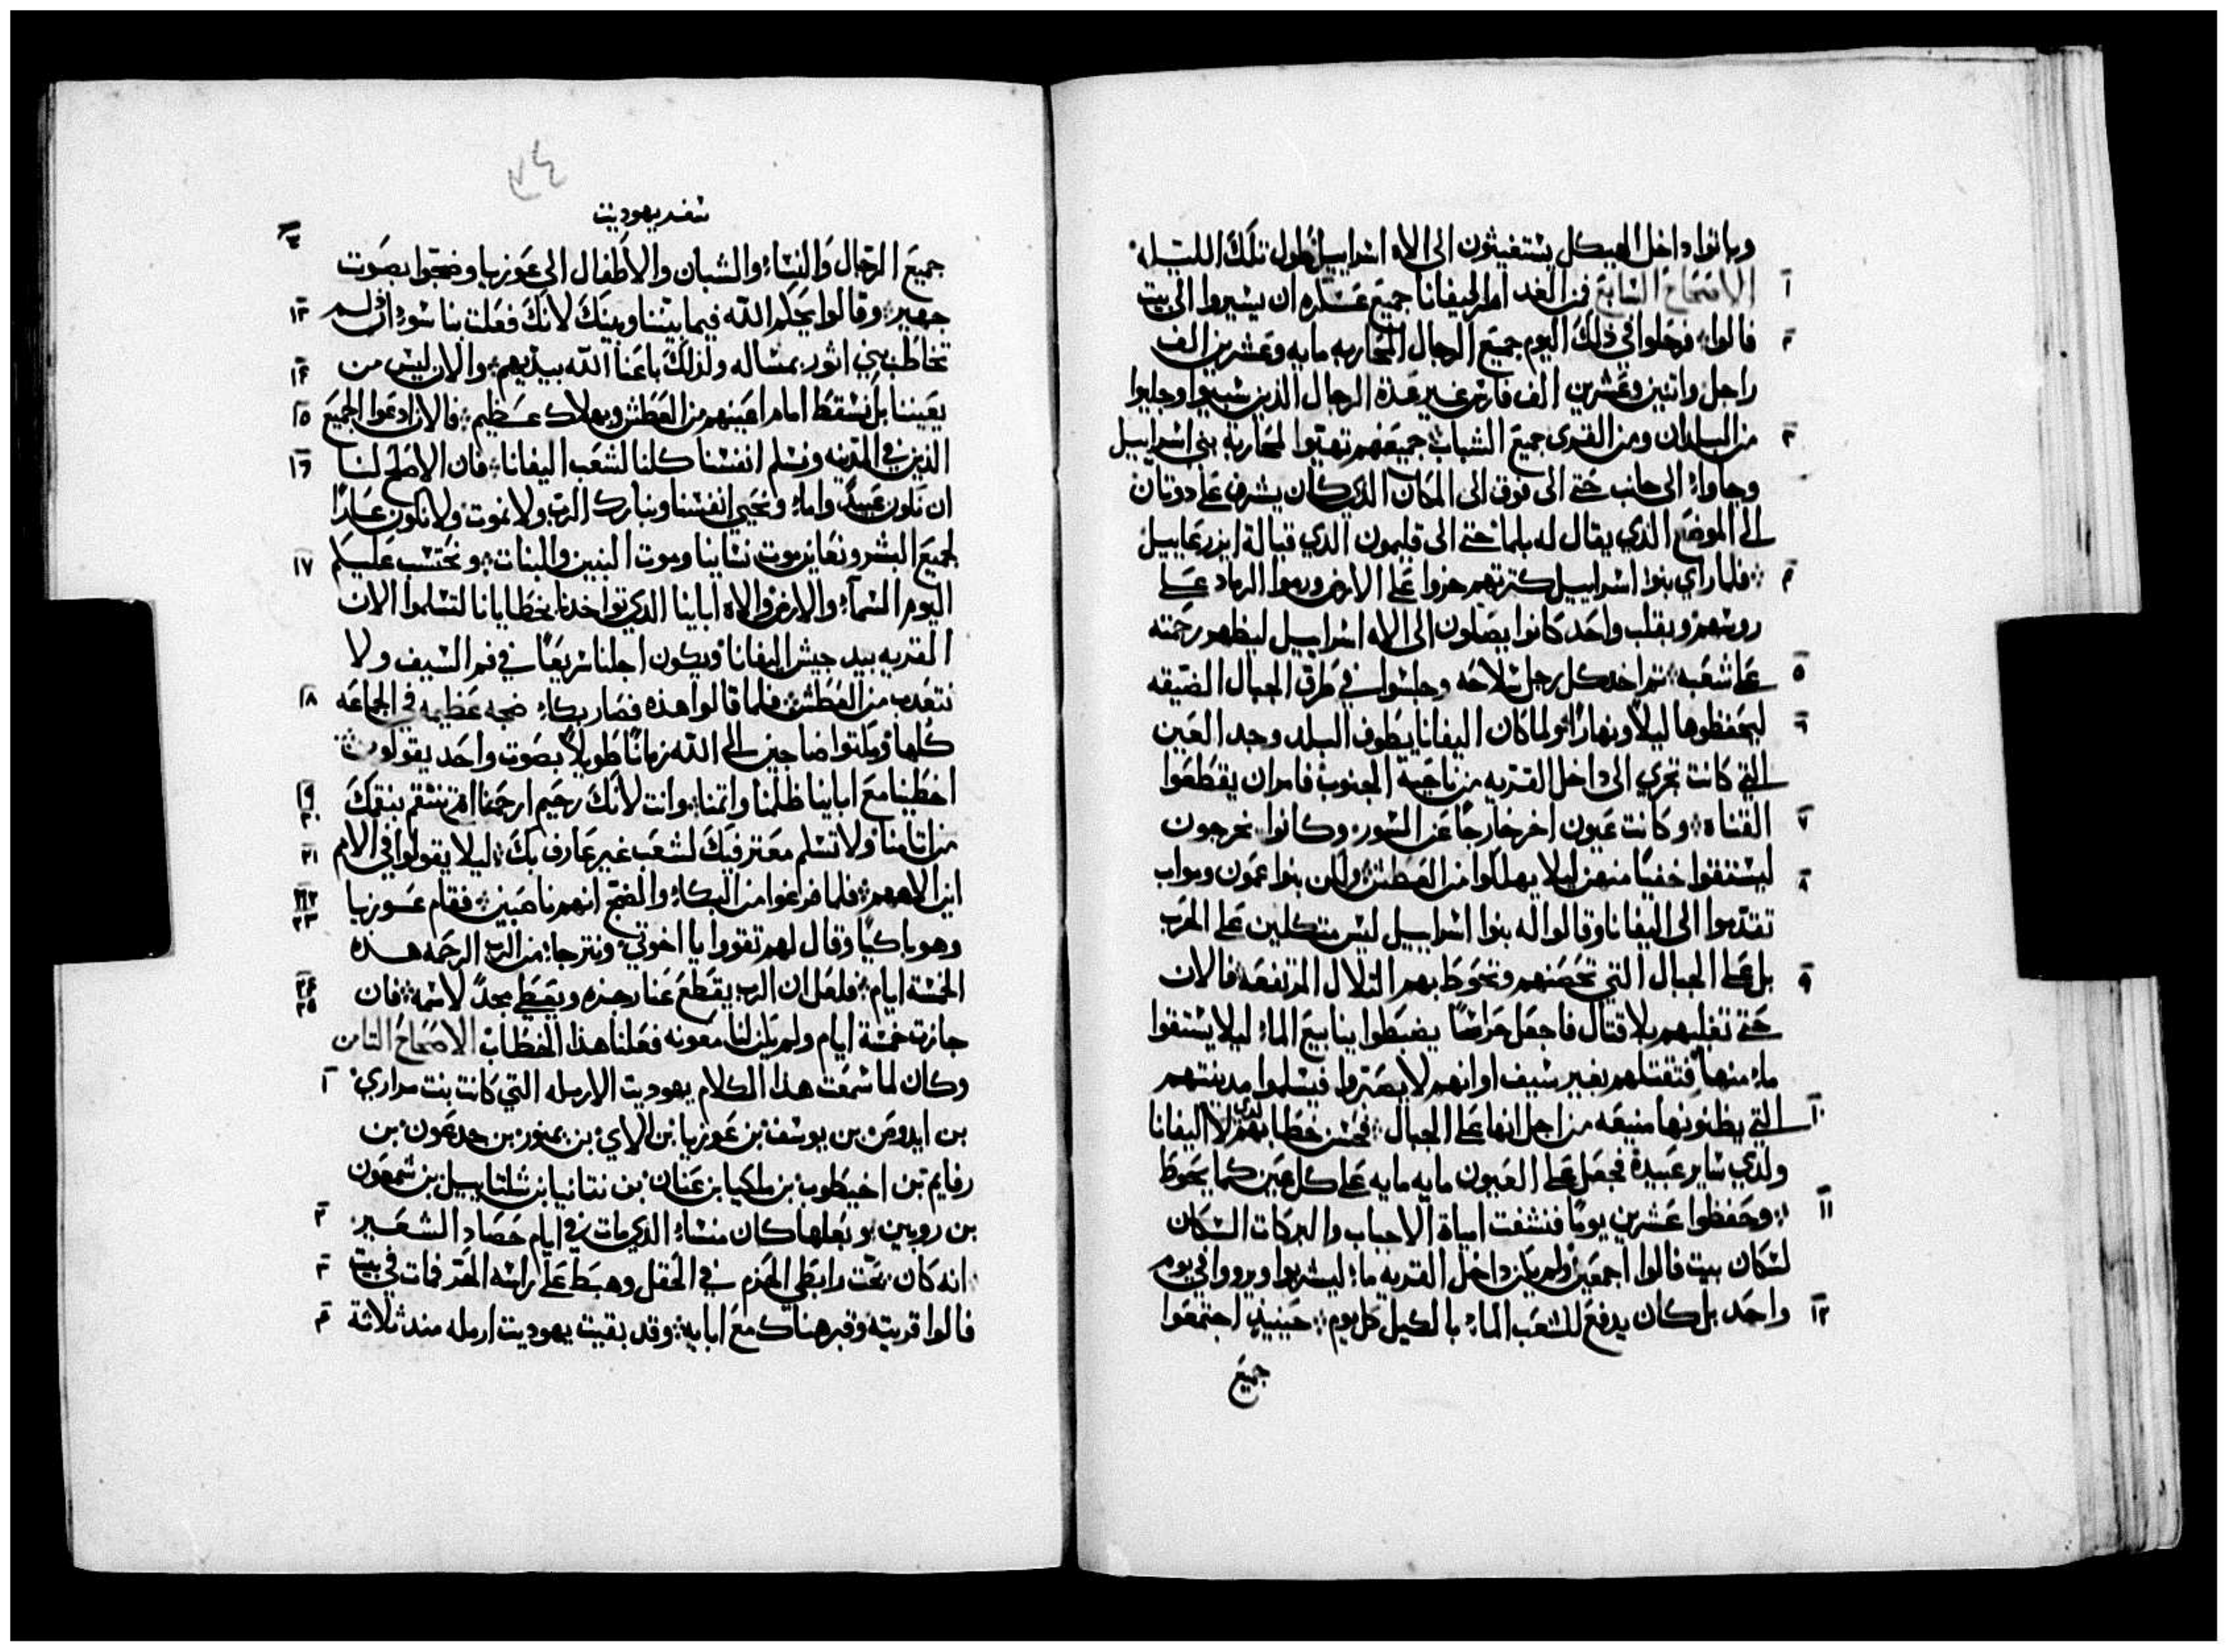 وباتوا داخل الهيكل يستغيثون الى الاه اسراييل طول تلك الليله
١ الاصحاح السابع فمن الغد امر اليفانا جميع عسكره ان يسيروا الى بيت
٢ فالوا فرحلوا في ذلك اليوم جميع الرجال المحاربه مايه وعشرين الف
راجل واتنين وعشرين الف فارس غير هذة الرجال الذين سُبيوا وجلبوا
٣ من البلدان ومن القرى جميع الشباب جميعهم تهيوا لمحاربة بني اسراييل
وجاوا الى جانب حتى الى فوق الى المكان الذي كان يشرف على دوتان
الى الموضع الذي يقال له بلما حتى الى قليمون الذي قبالة ايزرعاييل
٤ فلما راي بنوا اسراييل كترتهم خروا على الارض ورموا الرماد على
روسهم وبقلب واحد كانوا يصلون الى الاه اسراييل ليظهر رحمته
٥ على شعبه تم اخد كل رجل سلاحه وجلسوا في طرق الجبال الضيقه
٦ ليحفظوها ليلاً ونهارًا ولما كان اليفانا يطوف البلد وجد العين
التي كانت تجري الى داخل القريه من ناحية الجنوب فامر ان يقطعوا
٧ القناه وكانت عيون اخر خارجًا عن السور وكانوا يخرجون
٨ ليستقوا خفيًا منهن ليلا يهلكوا من العطش ولكن بنوا عمون ومواب
تقدموا الى اليفانا وقالوا له بنوا اسراييل ليس متكلين على الحرب
٩ بل على الجبال التي تحصنهم وتحوط بهم التلال المرتفعه فالان
حتى تغلبهم بلا قتال فاجعل حراسًا يضبطوا ينابيع الماء ليلا يستقوا
ماء منها فتقتلهم بغير سيف او انهم لا يصبروا فيسلموا مدينتهم
١٠ التي يظنونها منيعه من اجل انها على الجبال فحسن خطابهم لدى اليفانا
ولدي ساير عبيدة فجعل على العيون مايه مايه على كل عين كما يحوط
١١ وحفظوا عشرين يومًا فنشفت امياة الاجباب والبركات السكان
لسكان بيت فالوا اجمعين ولم يكن داخل القريه ماء ليشربوا ويرووا في يوم
١٢ واحد بل كان يدفع للشعب الماء بالكيل كل يوم حينيدٍ اجتمعوا
جميع
سفر يهوديت
جميع الرجال والنساء والشبان والاطفال الى عوزيا وضجوا بصوت
١٣ جهير وقالوا يحكم الله فيما بيننا وبينك لانك فعلت بنا سوء ان لم
١٤ تخاطب بني اثور بمساله ولذلك باعنا الله بيديهم والان ليس من
١٥ يعيننا بل نسقط امام اعينهم من العطش وبهلاك عظيم فالان ادعوا الجميع
١٦ الذين في المدينه ونسلم انفسنا كلنا لشعب اليفانا فان الاصلح لنا
ان نكون عبيدً واماء ونحيي انفسنا ونبارك الرب ولا نموت ولا نكون عارًا
١٧ لجميع البشر ونعاين موت نساينا وموت البنين والبنات ونحتسب عليكم
اليوم السماء والارض والاه اباينا الذي تواخدنا بخطايانا لتسلموا الان
القريه بيد جيش اليفانا ويكون اجلنا سريعًا في فم السيف ولا
١٨ نتعدب من العطش فلما قالوا هذه فصار بكاء ضجه عظيمه في الجماعه
كلها ومكتوا ضاجين الى الله زمانًا طويلاً بصوت واحد يقولون
١٩ ٢٠ اخطينا مع اباينا ظلمنا واتمنا وانت لانك رحيم ارحمنا او تنتقم بنقمك
٢١ من اتامنا ولا تسلم معترفيك لشعب غير عارف بك ليلا يقولوا في الامم
٢٢ ٢٣ اين الاههم فلما فرغوا من البكاء والضج انهم ناصبين فقام عوزيا
وهو باكيًا وقال لهم تقووا يا اخوتي ونترجاء من الرب الرحمه هذه
٢٤ ٢٥ الخمسة ايام فلعل ان الرب يقطع عنا رجزه ويعطي مجدً لاسمه فان
جازت خمسة ايام ولم يكن لنا معونه فعلنا هذا الخطاب الاصحاح التامن
١ وكان لما سمعت هذا الكلام يهوديت الارمله التي كانت بنت مراري
بن ايدوص بن يوسف بن عوزيا بن الاي بن يمنور بن جدعون بن
رفايم بن اخيطوب بن ملكيا بن عنان بن نتانيا بن شلتاييل بن شمعون
٢ بن روبين وبعلها كان منساء الذي مات في ايام حصاد الشعير
٣ انه كان تحت رابطي الحزم في الحقل وهبط على راسه الحر فمات في بيت
٤ فالوا قريته وقبر هناك مع ابايه وقد بقيت يهوديت ارمله مند ثلاثة